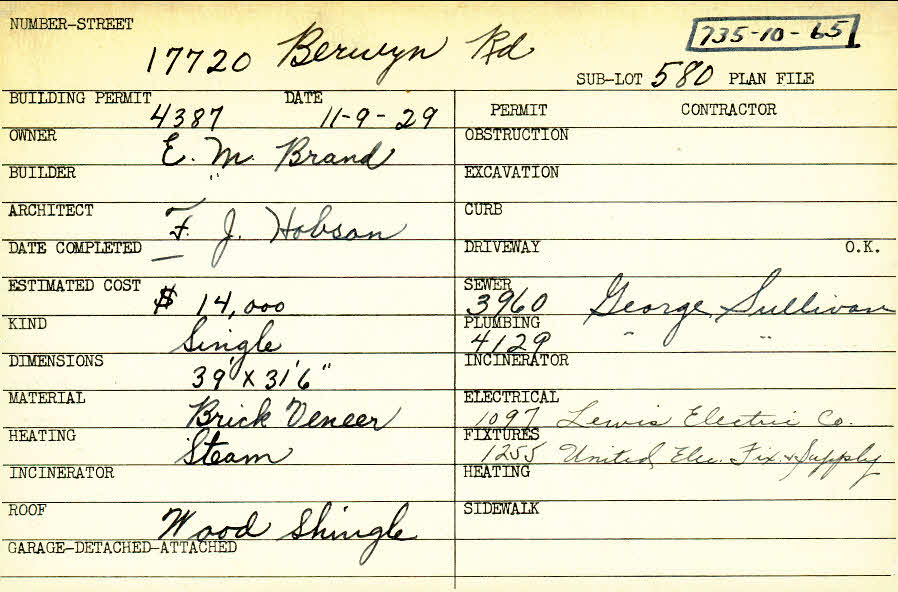 NUMBER-STREET
17720 Berwyn Rd
735-10-65
SUB-LOT 580 PLAN FILE
BUILDING PERMIT 4387 DATE 11-9-29
OWNER E. M. Brand
BUILDER "
ARCHITECT F. J. Hobson
DATE COMPLETED —
ESTIMATED COST $ 14,000
KIND Single
DIMENSIONS 39' X 31'6"
MATERIAL Brick Veneer
HEATING Steam
INCINERATOR
ROOF Wood Shingle
GARAGE-DETACHED-ATTACHED
PERMIT CONTRACTOR
OBSTRUCTION
EXCAVATION
CURB
DRIVEWAY O.K.
SEWER 3960 George Sullivan
PLUMBING 4129 " "
INCINERATOR
ELECTRICAL 1097 Lewis Electric Co.
FIXTURES 1255 United Elec. Fix. & Supply
HEATING
SIDEWALK